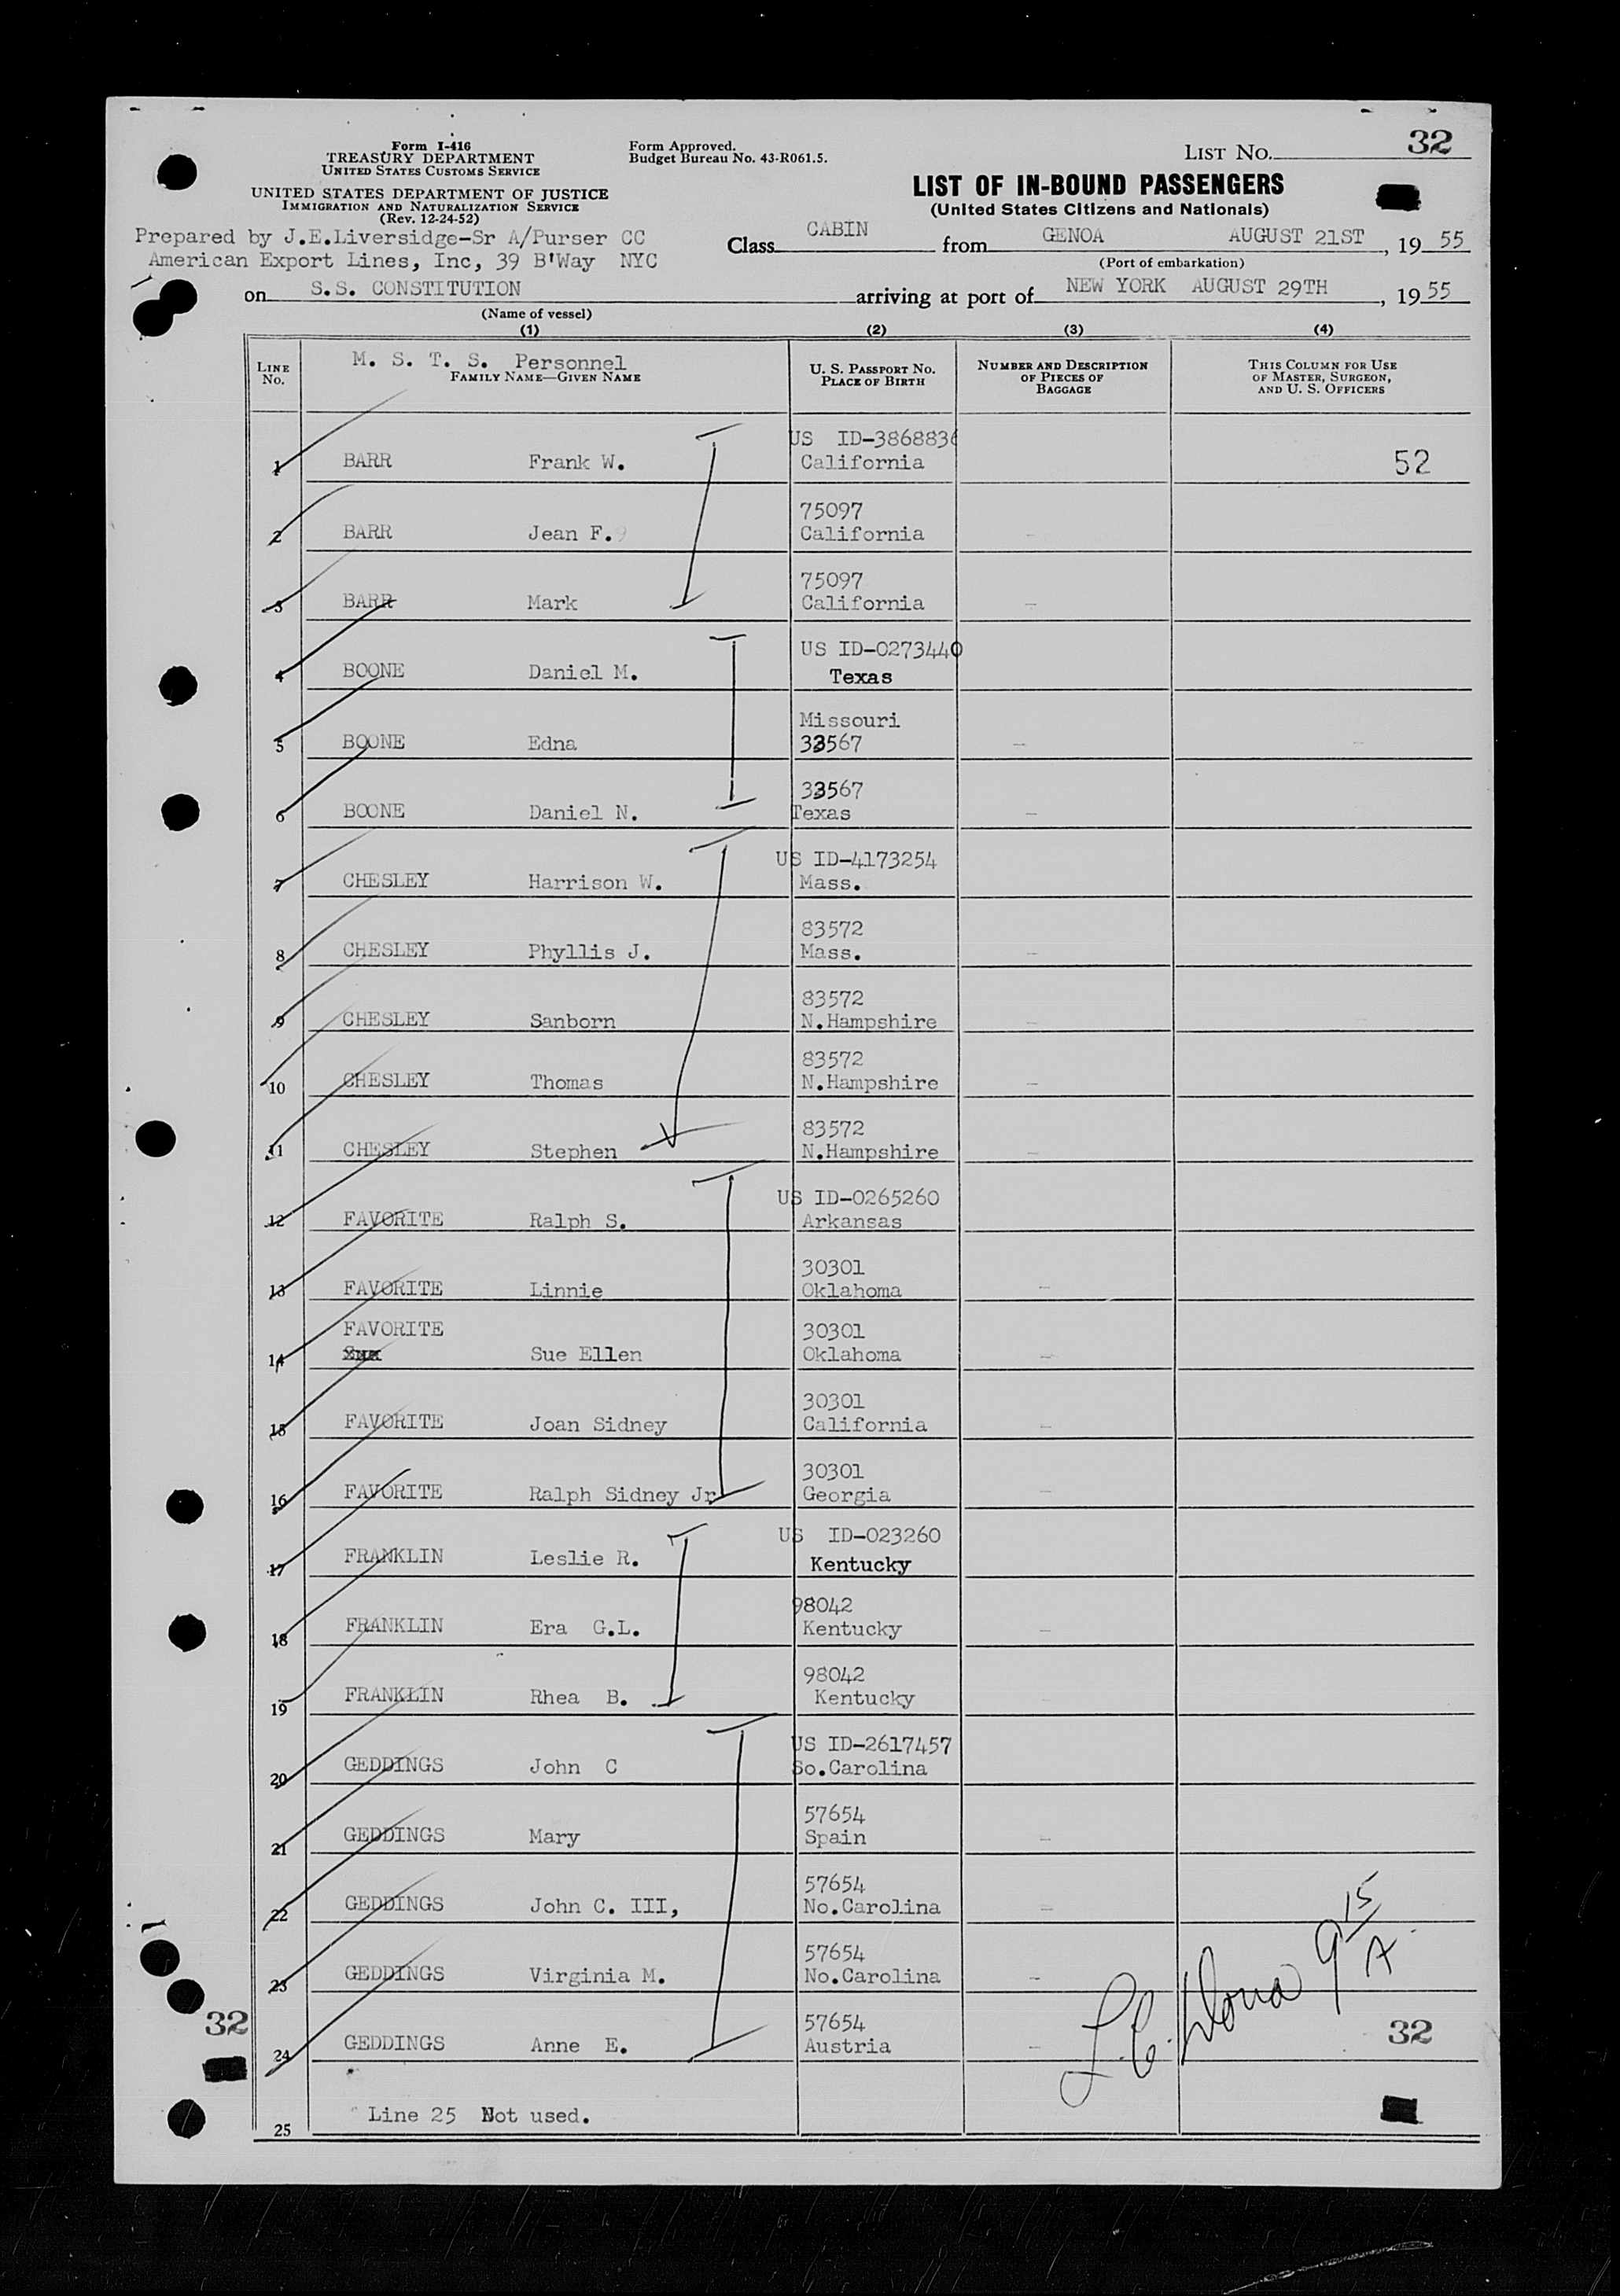 Form I-416
TREASURY DEPARTMENT
UNITED STATES CUSTOMS SERVICE
UNITED STATES DEPARTMENT OF JUSTICE
IMMIGRATION AND NATURALIZATION SERVICE
(Rev. 12-24-52)
Form Approved.
Budget Bureau No. 43-R061.5.
LIST NO. 32
LIST OF IN-BOUND PASSENGERS
(United States Citizens and Nationals)
Prepared by J.E.Liversidge-Sr A/Purser CC
American Export Lines, Inc, 39 B'Way NYC
Class CABIN from GENOA AUGUST 21ST, 19 55
(Port of embarkation)
on S.S. CONSTITUTION arriving at port of NEW YORK AUGUST 29TH, 19 55
(Name of vessel)
(1) (2) (3) (4)
LINE NO.
M. S. T. S. Personnel
FAMILY NAME—GIVEN NAME
U. S. PASSPORT NO.
PLACE OF BIRTH
NUMBER AND DESCRIPTION
OF PIECES OF
BAGGAGE
THIS COLUMN FOR USE
OF MASTER, SURGEON,
AND U. S. OFFICERS
US ID-3868836
1 BARR Frank W. California 52
75097
2 BARR Jean F. California -
75097
3 BARR Mark California -
US ID-0273440
4 BOONE Daniel M. Texas
Missouri
5 BOONE Edna 33567 -
33567
6 BOONE Daniel N. Texas -
US ID-4173254
7 CHESLEY Harrison W. Mass.
83572
8 CHESLEY Phyllis J. Mass. -
83572
9 CHESLEY Sanborn N.Hampshire -
83572
10 CHESLEY Thomas N.Hampshire -
83572
11 CHESLEY Stephen N.Hampshire -
US ID-0265260
12 FAVORITE Ralph S. Arkansas
30301
13 FAVORITE Linnie Oklahoma -
FAVORITE 30301
14 Sue Ellen Oklahoma -
30301
15 FAVORITE Joan Sidney California -
30301
16 FAVORITE Ralph Sidney Jr Georgia -
US ID-023260
17 FRANKLIN Leslie R. Kentucky
98042
18 FRANKLIN Era G.L. Kentucky -
98042
19 FRANKLIN Rhea B. Kentucky -
US ID-2617457
20 GEDDINGS John C So.Carolina
57654
21 GEDDINGS Mary Spain -
57654
22 GEDDINGS John C. III, No.Carolina -
57654
23 GEDDINGS Virginia M. No.Carolina -
9 15 A
L.C.
32 57654 32
24 GEDDINGS Anne E. Austria -
Line 25 Not used.
25